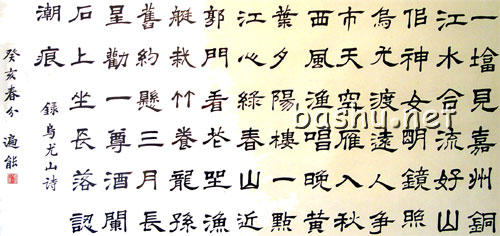 一墖見嘉州銅
江水合流好山
佀神女明鏡照
烏尤渡遠人爭
市天空雁入秋
西風漁唱晚黃
葉夕陽樓一點
江心綠春山近
郭門看花坐漁
艇栽竹養龍孫
舊約懸三月長
星勸一尊酒闌
石上坐長落認
潮痕
錄烏尤山詩
癸亥春分 遍能
bashu.net